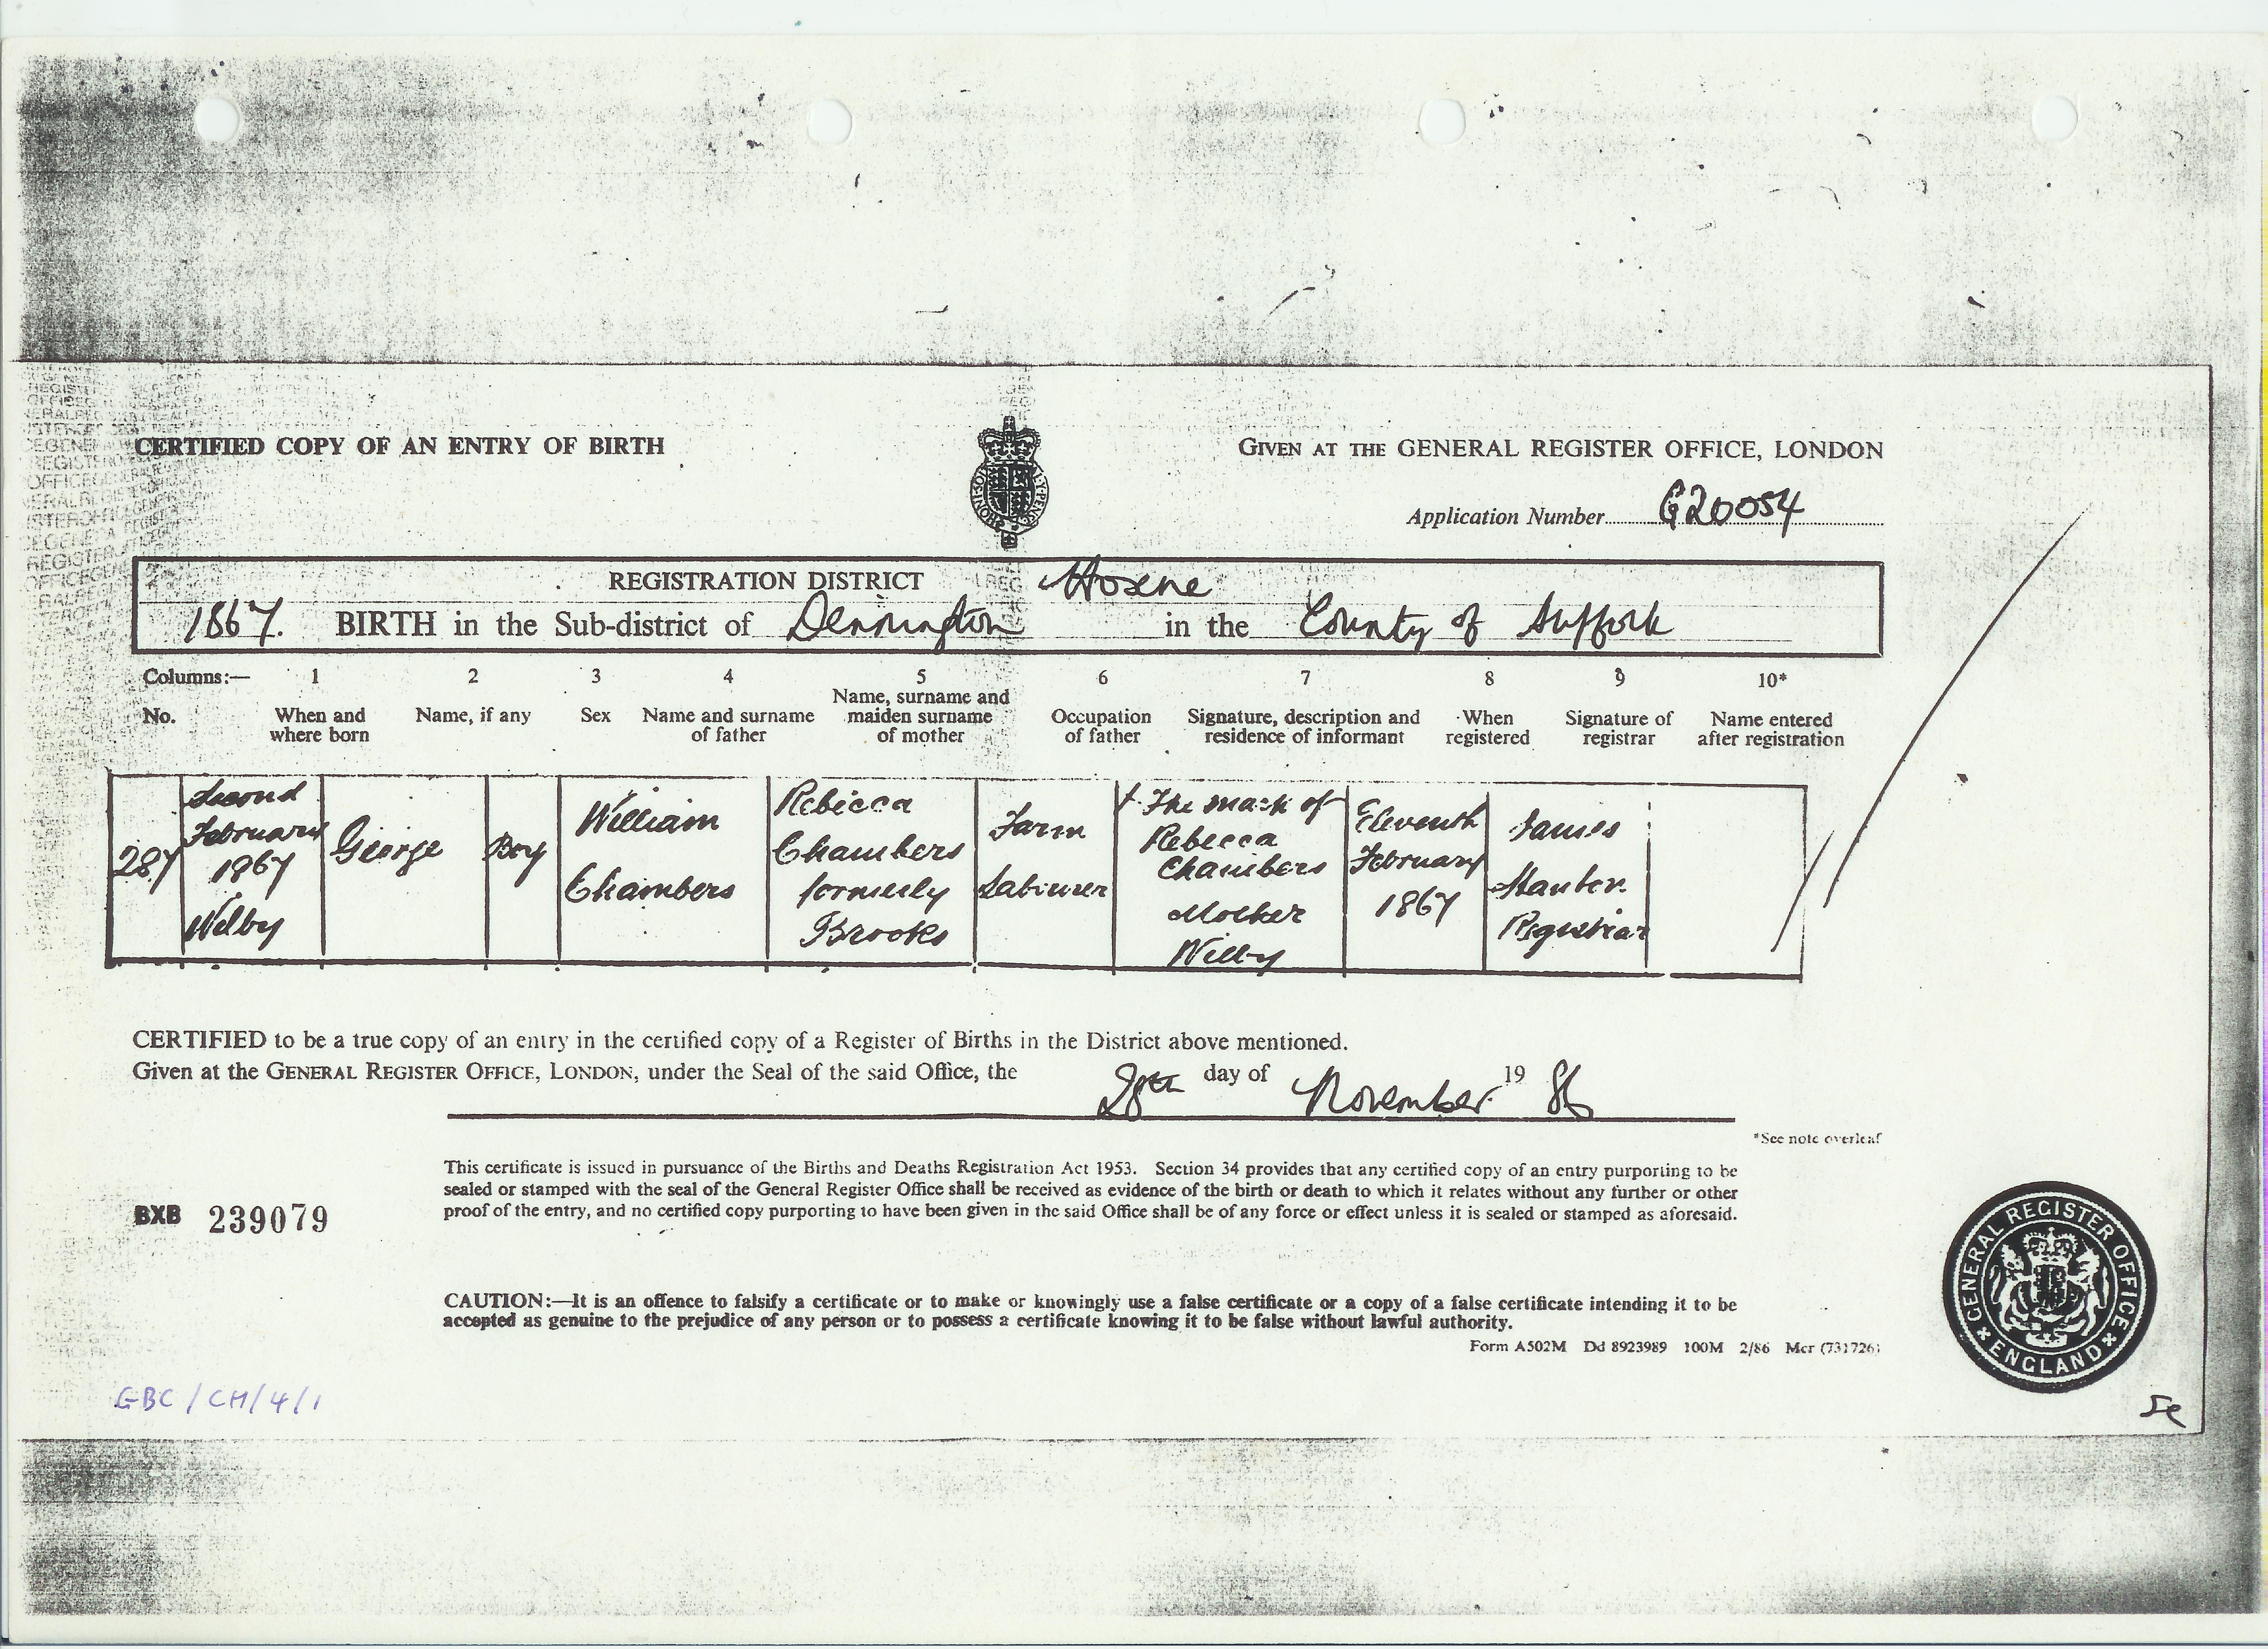 CERTIFIED COPY OF AN ENTRY OF BIRTH
GIVEN AT THE GENERAL REGISTER OFFICE, LONDON
Application Number G20054
REGISTRATION DISTRICT Hoxne
1867. BIRTH in the Sub-district of Dennington in the County of Suffolk
Columns:— 1 2 3 4 5 6 7 8 9 10*
No. When and where born Name, if any Sex Name and surname of father Name, surname and maiden surname of mother Occupation of father Signature, description and residence of informant When registered Signature of registrar Name entered after registration
287
Second
February
1867
Wilby
George
Boy
William
Chambers
Rebecca
Chambers
formerly
Brooks
Farm
Labourer
X The mark of
Rebecca
Chambers
Mother
Wilby
Eleventh
February
1867
James
Registrar
CERTIFIED to be a true copy of an entry in the certified copy of a Register of Births in the District above mentioned.
Given at the GENERAL REGISTER OFFICE, LONDON, under the Seal of the said Office, the 28th day of November 19 86
*See note overleaf
This certificate is issued in pursuance of the Births and Deaths Registration Act 1953. Section 34 provides that any certified copy of an entry purporting to be
sealed or stamped with the seal of the General Register Office shall be received as evidence of the birth or death to which it relates without any further or other
proof of the entry, and no certified copy purporting to have been given in the said Office shall be of any force or effect unless it is sealed or stamped as aforesaid.
BXB 239079
CAUTION:—It is an offence to falsify a certificate or to make or knowingly use a false certificate or a copy of a false certificate intending it to be
accepted as genuine to the prejudice of any person or to possess a certificate knowing it to be false without lawful authority.
Form A502M Dd 8923989 100M 2/86 Mcr (731726)
GENERAL REGISTER OFFICE
ENGLAND
GBC/CH/4/1